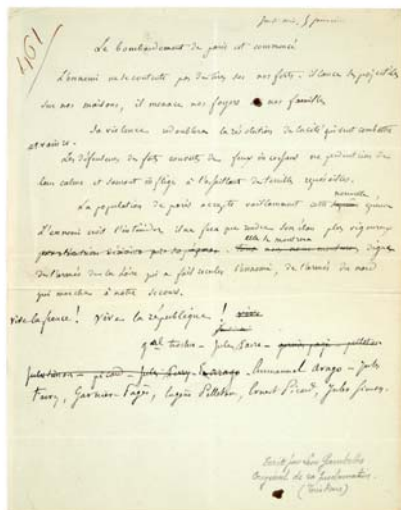 461
5 janvier
Le bombardement de paris est commencé
L'ennemi ne se contente pas de tirer sur nos forts. il lance des projectiles
sur nos maisons, il menace nos foyers et nos familles
sa violence redoublera la résolution de la cité qui veut combattre
et vaincre.
Les défenseurs des forts couverts de feux incessants ne perdent rien de
leur calme et sauront infliger à l'assaillant de terribles représailles.
La population de paris accepte vaillamment cette nouvelle épreuve
L'ennemi croit l'intimider, il ne fera que rendre son élan plus vigoureux
elle se montrera digne
de l'armée de la Loire qui a fait reculer l'ennemi, de l'armée du nord
qui marche à notre secours.
vive la france! Vive la république! vive
gal trochu - Jules Favre -
Emmanuel Arago - Jules
Ferry, Garnier-Pagès, Eugène Pelletan, Ernest Picard, Jules Simon.
Ecrit par Léon Gambetta
Original de sa proclamation